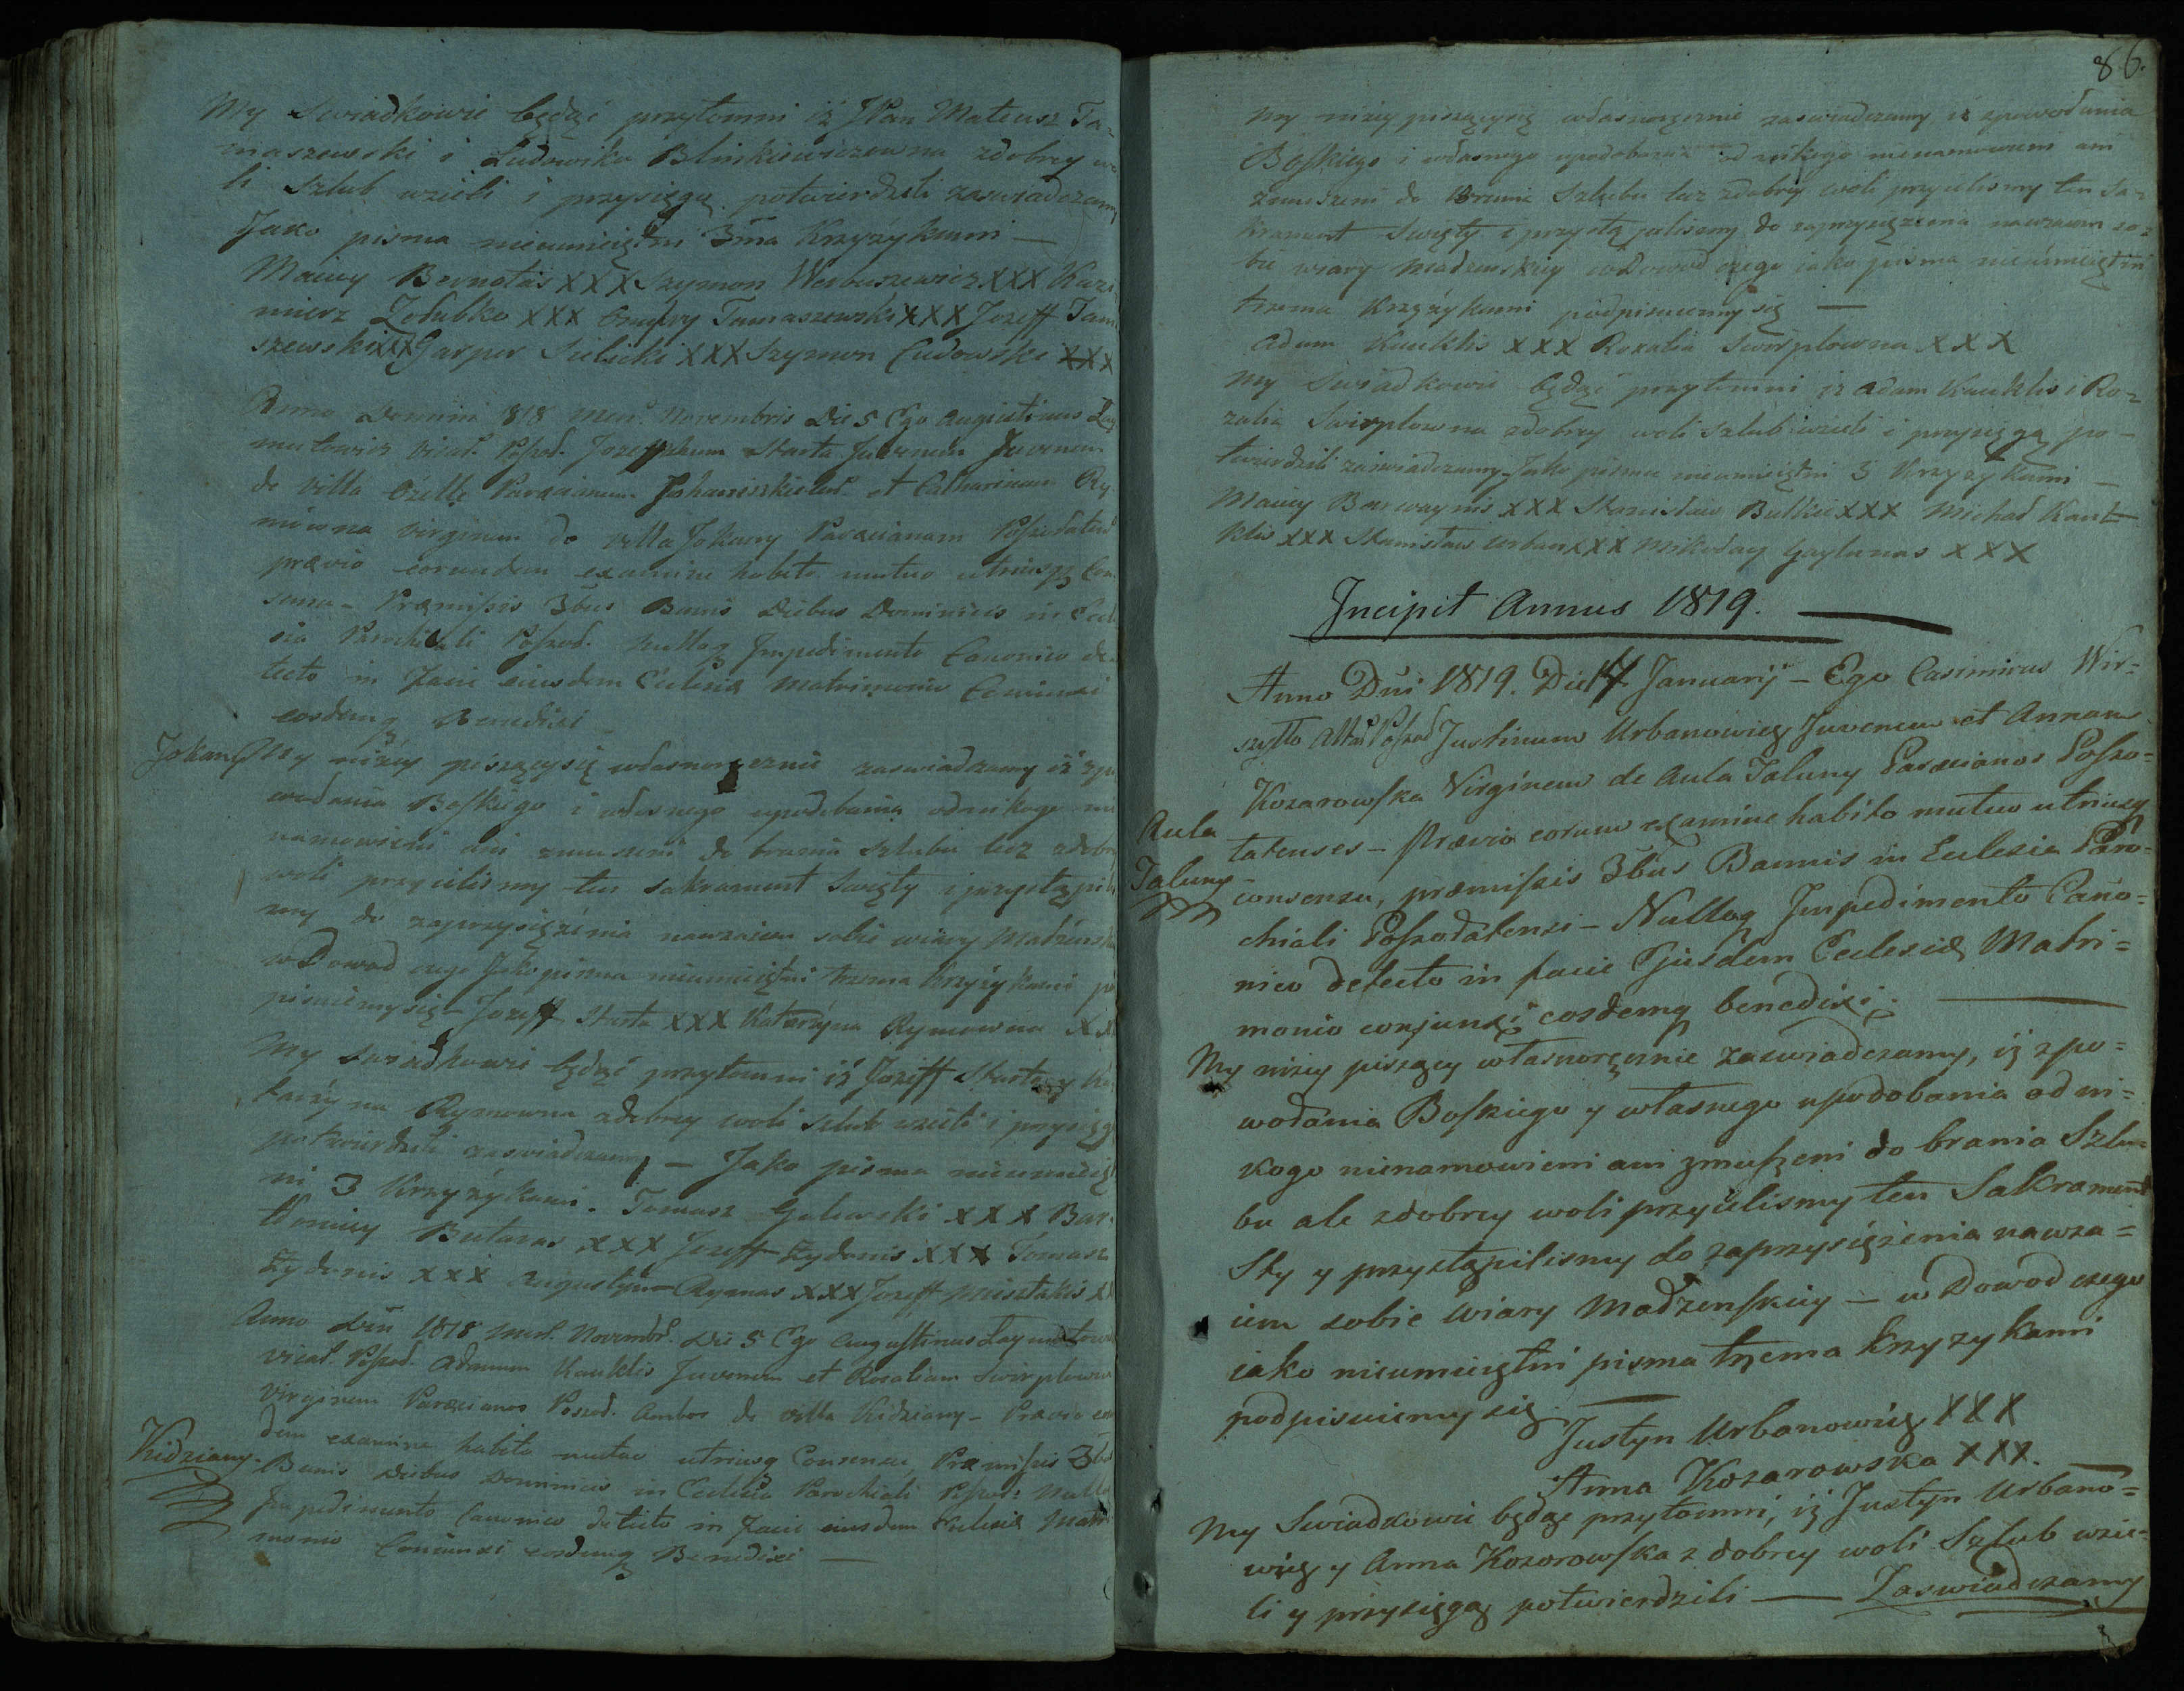 My Swiadkowie będąć przytomni iż JPan Mateusz Ta=
maszewski i Ludowika Blinkiewiczewna zdobrey wo
li Szlub wzieli i przysięgą potwierdzili zaswiadczamy
Jako pisma nieumieiętni 3ma Krzyżykami —
Maciey Bernotas XXX Szymon Werbuszewicz XXX Kazi
mierz Zołubko XXX Onufry Tamaszewski XXX Jozeff Tam
szewski XXX Gasper Sielicki XXX Szymon Cudowski XXX
Anno Domini 818 Men. Novembris Die 5 Ego Augustinus Lay
mutowicz Vicar. Poszod. Josephum Starta Juvenem
de villa Ozelle Paraecianum Johaniszkielens. et Catharinam Ry
mowna Virginem de villa Jokany Paraecianam Poszodatens
praevio eorundem examine habito mutuo utriusq Con
sensu – Praemissis 3bus Bannis Diebus Dominicis in Eccle
sia Parochiali Poszod. Nulloq Impedimento Canonico de
tecto in Facie eiusdem Ecclesiae Matrimonio Coniunxi
eosdemq Benedixi
Jokany My niżey pisząćysię własnoręcznie zaswiadczamy iż zpo
wodania Boskiego i własnego upodobania odnikogo nie
namowieni ani zmuszeni do brania szlubu lecz zdobrey
woli przyielismy ten Sakrament Swięty i przystąpili
my do zaprzysiężenia nawzaiem sobie wiary Madżensk
w Dowod czego Jako pisma nieumieiętni trzema krzyżykami po
pisuiemysię – Jozeff Starta XXX Katarzyna Rymowna XX
My Swiadkowie będąć przytomni iż Jozeff Starta y Ka
tarżyna Rymowna zdobrey woli szlub wzieli i przysięgą
potwierdzili zaswiadczamy – Jako pisma nieumieięt
ni 3 Krzyżykami. Tomasz Galewski XXX Bar
tłomiey Butaras XXX Jozeff Żydonis XXX Tomasz
Żydonis XXX Augustyn Rymas XXX Jozeff Miesztakis XX
Anno Dni 1818 Mens. Novembr. Die 5 Ego Augustinus Laymutowi
Vicar. Poszod. Adamum Kauklis Juvenem et Rosaliam Swirplowna
Virginem Paraecianos Poszod. Ambos de villa Kidziany – Praevio eor
dem examine habito mutuo utriusq Consensu, Praemissis 3bus
Kidziany. Bannis Diebus Dominicis in Ecclesia Parochiali Poszod. Nullo
Impedimento Canonico detecto in Facie eiusdem Ecclesiae Matri
monio Coniunxi eosdemq Benedixi —
86.
My niżey pisząćysię własnoręcznie zaswiadczamy iż zpowodania
Boskiego i własnego upodobania od nikogo nienamowieni ani
zmuszeni do Brania Szlubu lecz zdobrey woli przyielismy ten Sa=
krament Swięty i przystąpilismy do zaprzysięzenia nawzaiem so=
bie wiary Madzenskiey w Dowod czego iako pisma nieumieiętni
trzema Krzyżykami podpisuiemy się —
Adam Kauklis XXX Rozalia Swirplowna XXX
My Swiadkowie będąć przytomni iż Adam Kauklis i Ro=
zalia Swirplowna zdobrey woli szlub wzieli i przysięgą po-
twierdzili zaswiadczamy. Jako pisma nieumieiętni 3 Krzyżykami —
Maciey Barwaynis XXX Stanisław Butkis XXX Michał Kauk
klis XXX Stanisław Urban XXX Mikołay Gaylunas XXX
Incipit Annus 1819. —
Anno Dni 1819. Die 17 Januarij – Ego Casimirus Wir=
szyłło Altar. Poszod Justinum Urbanowicz Juvenem et Annam
Kozarowska Virginem de Aula Taluny Paraecianos Poszo=
Aula
Taluny
tatenses – Praevio eorum examine habito mutuo utriusq
consensu, praemissis 3bus Bannis in Ecclesia Paro=
chiali Poszodatensi – Nulloq Impedimento Cano=
nico detecto in facie Ejusdem Ecclesiae Matri=
monio conjunxi eosdemq benedixi. —
My niżey pisząćy własnoręcznie zaswiadczamy, iż zpo=
wodania Boskiego y własnego upodobania od ni=
kogo nienamowieni ani zmuszeni do brania Szlu=
bu ale zdobrey woli przyielismy ten Sakrament
Sty y przystąpilismy do zaprzysiężenia nawza=
iem sobie Wiary Madzenskiey – w Dowod czego
iako nieumieiętni pisma trzema krzyzykami
podpisuiemy się —
Justyn Urbanowicz XXX
Anna Kozarowska XXX.
My Swiadkowie będąc przytomni, iż Justyn Urbano=
wicz y Anna Kozorowska z dobrey woli Szlub wzie=
li y przysięgą potwierdzili — Zaswiadczamy